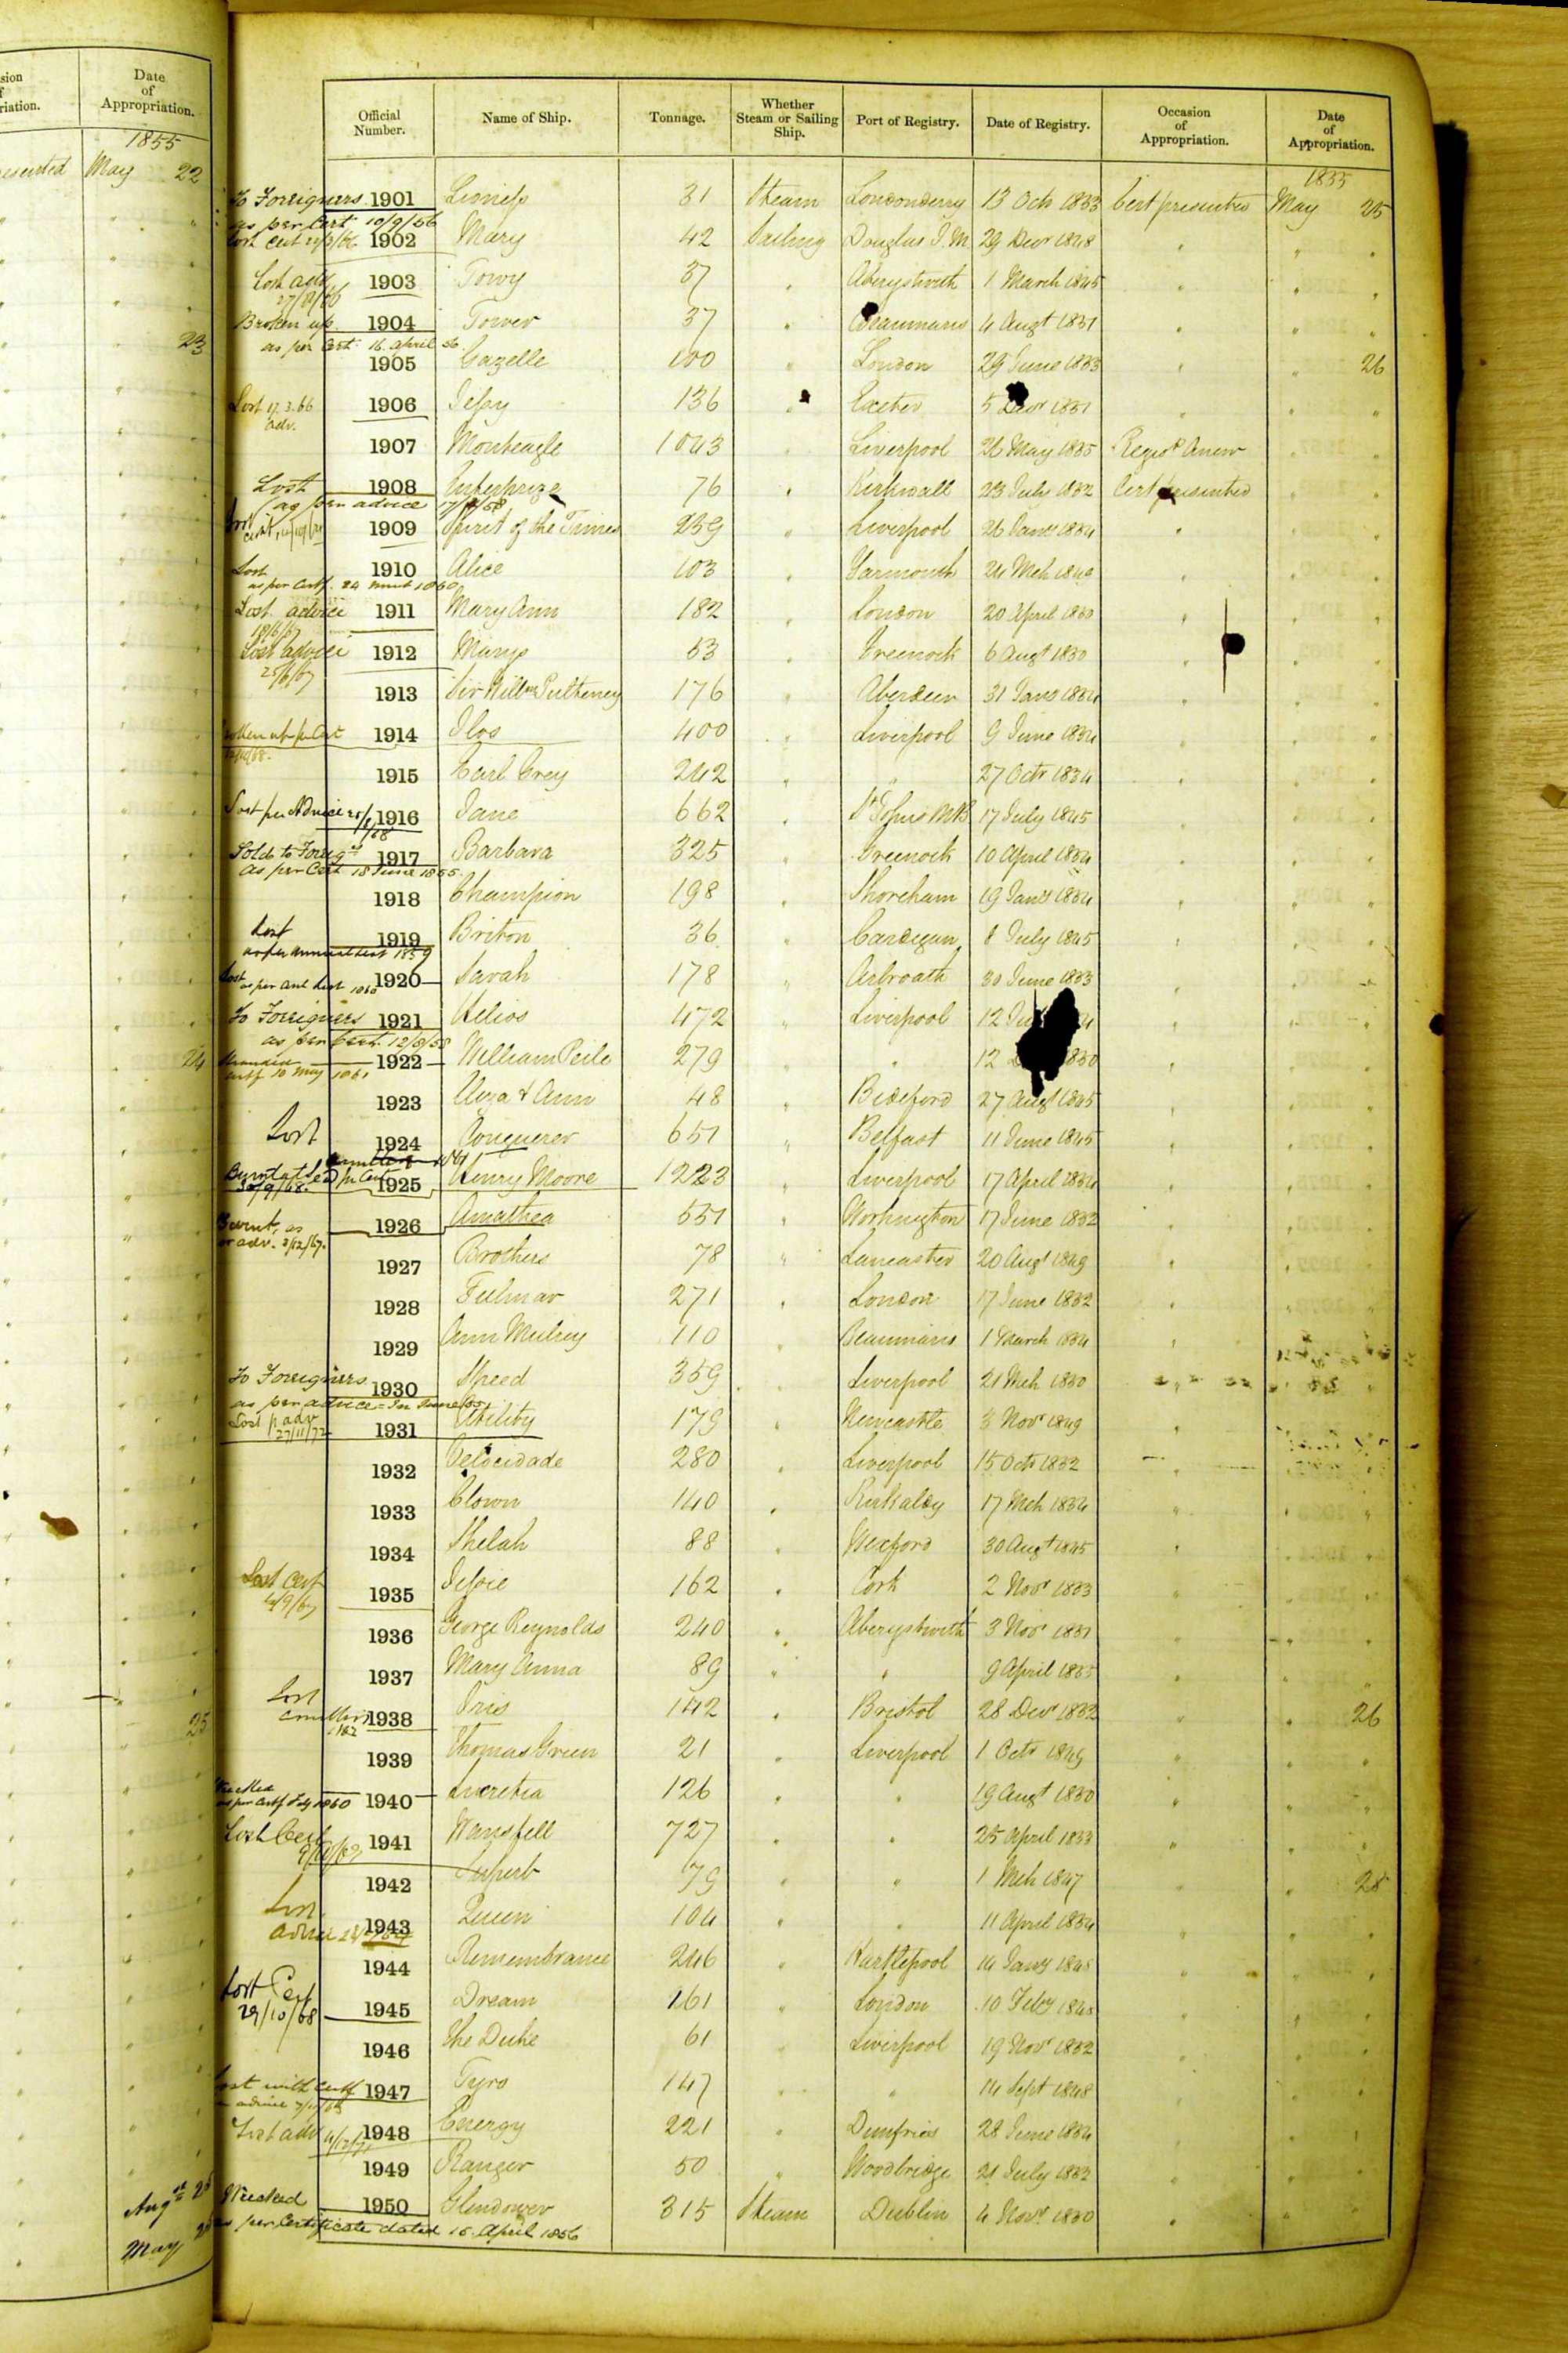 sion
f
riation.
Date
of
Appropriation.
1855
esented May 22
23
24
25
Augst 25
May
Official
Number.
Name of Ship.
Tonnage.
Whether
Steam or Sailing
Ship.
Port of Registry.
Date of Registry.
Occasion
of
Appropriation.
Date
of
Appropriation.
1855
To Foreigners 1901 Lioness 31 Steam Londonderry 13 Octr 1853 Cert presented May 25
as per Cert 10/9/56
1902 Mary 42 Sailing Douglas I.M. 29 Decr 1848 " " "
Lost adv 1903 Towy 37 " Aberystwith 1 March 1845 " " "
Broken up 1904 Tower 37 " Beaumaris 4 Augt 1851 " " "
as per Cert: 16 April 56
1905 Gazelle 100 " London 29 June 1853 " 26
Lost 17.3.66 1906 Jessy 136 " Exeter 5 Decr 1851 " " "
adv.
1907 Monteagle 1043 Liverpool 26 May 1855 Regd Anew " "
Lost 1908 Enterprize 76 " Kirkwall 23 July 1852 Cert presented " "
as per advice
1909 Spirit of the Times 239 " Liverpool 26 Jany 1854 " " "
Lost 1910 Alice 103 " Yarmouth 24 Mch 1849 " " "
as per Certf. 24
Lost advice 1911 Mary Ann 182 " London 20 April 1850 " " "
18/6/67
Lost advice 1912 Mary 53 " Greenock 6 Augt 1850 " " "
25/6/67
1913 Sir Willm Pulteney 176 " Aberdeen 31 Jany 1854 " " "
Broken up p Cert 1914 400 " Liverpool 9 June 1854 " " "
1915 Earl Grey 242 " " 27 Octr 1854 " " "
Lost per Advice 1916 Jane 662 " St Johns NB 17 July 1845 " " "
Sold to Foreigrs 1917 Barbara 325 " Greenock 10 April 1854 " " "
as per Cert 18 June 1855
1918 Champion 198 " Shoreham 19 Jany 1854 " " "
Lost 1919 Briton 36 " Cardigan 8 July 1845 " " "
as per annual List 1859
Lost 1920 Sarah 178 " Arbroath 30 June 1853 " " "
as per anl List 1860
To Foreigners 1921 Helios 472 " Liverpool 12 " " "
as per Cert. 12/8/58
1922 William Peile 279 " " 12 1850 " " "
certf 10 May 1861
1923 Eliza & Ann 48 " Bideford 27 Augt 1845 " " "
Lost 1924 Conqueror 651 " Belfast 11 June 1845 " " "
Burnt at Sea p Cert 1925 Henry Moore 1223 " Liverpool 17 April 1854 " " "
30/9/68.
Burnt, as 1926 Amalthea 531 " Workington 17 June 1852 " " "
per adv. 2/12/67.
1927 Brothers 78 " Lancaster 20 Augt 1849 " " "
1928 Fulmar 271 " London 17 June 1852 " " "
1929 Ann Mulrey 110 " Beaumaris 1 March 1854 " " "
To Foreigners 1930 Speed 359 " Liverpool 21 Mch 1850 " " "
as per advice - In June/55
Lost p adv 1931 Utility 179 " Newcastle 3 Novr 1849 " " "
27/11/72
1932 Velocidade 280 " Liverpool 15 Octr 1852 " " "
1933 Clown 140 " Kirkaldy 17 Mch 1854 " " "
1934 Shelah 88 " Wexford 30 Augt 1845 " " "
Lost Cert 1935 Jessie 162 " Cork 2 Novr 1853 " " "
4/9/67
1936 George Reynolds 240 " Aberystwith 3 Novr 1851 " " "
1937 Mary Anna 89 " " 9 April 1855 " " "
Lost 1938 Iris 142 " Bristol 28 Decr 1852 " " 26
1939 Thomas Green 21 " Liverpool 1 Octr 1849 " " "
1940 Lucretia 126 " " 19 Augt 1850 " " "
as per Certf July 1860
Lost Cert 1941 Wansfell 727 " " 25 April 1853 " " "
1942 Superb 79 " " 1 Mch 1847 " " 28
Lost 1943 Queen 104 " " 11 April 1854 " " "
advice
1944 Remembrance 246 " Hartlepool 14 Jany 1848 " " "
Lost Cert 1945 Dream 161 " London 10 Feby 1848 " " "
29/10/68
1946 The Duke 61 " Liverpool 19 Novr 1852 " " "
Lost with Certf 1947 Tyro 147 " " 14 Sept 1848 " " "
Lost adv 4/12/71 1948 Energy 221 " Dumfries 28 June 1854 " " "
1949 Ranger 50 " Woodbridge 21 July 1852 " " "
Wrecked 1950 Glendower 315 Steam Dublin 4 Novr 1850 " " "
as per Certificate dated 16 April 1856